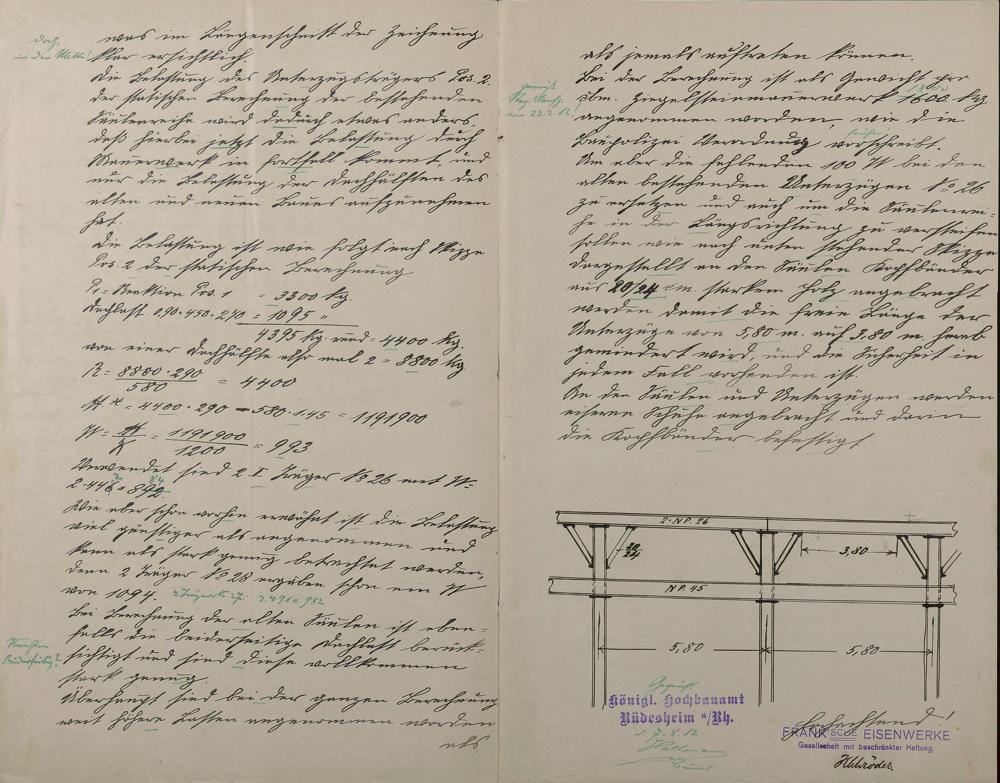 was im Längenschnitt der Zeichnung
klar ersichtlich.
Die Belastung des Unterzugsträgers Pos. 2.
der statischen Berechnung der bestehenden
Säulenreihe wird dadurch etwas anders,
daß hierbei jetzt die Belastung durch
Mauerwerk in fortfall kommt, und
nur die Belastung der Dachhälften des
alten und neuen Baues aufzunehmen
hat.
Die Belastung ist wie folgt nach Skizze
Pos. 2 der statischen Berechnung
P1 = Reaktion Pos. 1 = 3300 kg.
Dachlast 0,90·450·270 = 1095 "
4395 kg. rund = 4400 kg.
von einer Dachhälfte also mal 2 = 8800 kg
= 8880·290 / 580 = 4400
= 4400·290 – 580·145 = 1191900
W = M / K = 1191900 / 1200 = 993
Verwendet sind 2 I Träger No 26 mit W =
2·446 = 892.
Wie aber schon vorhin erwähnt ist die Belastung
viel günstiger als angenommen und
kann als stark genug betrachtet werden,
denn 2 Träger No 28 ergäben schon ein W
von 1094. 2 Träger N. 27: 2·491 = 982
Bei Berechnung der alten Säulen ist eben=
falls die beiderseitige Dachlast berück=
sichtigt und sind diese vollkommen
stark genug.
Überhaupt sind bei der ganzen Berechnung
weit höhere Lasten angenommen worden
als
doch,
in der Mitte!
als jemals auftreten können.
Bei der Berechnung ist als Gewicht pro
cbm. Ziegelsteinmauerwerk 1600 kg
angenommen worden, wie die
Baupolizei Verordnung vorschreibt.
früher
Um aber die fehlenden 100 W bei den
alten bestehenden Unterzügen No 26
zu ersetzen und auch um die Säulenrei-
he in der Längsrichtung zu versteifen
sollen wie nach unten stehender Skizze
dargestellt an den Säulen Kopfbänder
aus 20/24 cm. starkem Holz angebracht
werden damit die freie Länge der
Unterzüge von 5,80 m. auf 3,80 m. herab
gemindert wird, und die Sicherheit in
jedem Fall vorhanden ist.
An den Säulen und Unterzügen werden
eiserne Schuhe angebracht und darin
die Kopfbänder befestigt.
2·NP. 26
20/24
3,80
NP. 45
5,80
5,80
Geprüft
Königl. Hochbauamt
Rüdesheim a/Rh.
Hochachtend!
FRÄNK'SCHE EISENWERKE
Gesellschaft mit beschränkter Haftung.